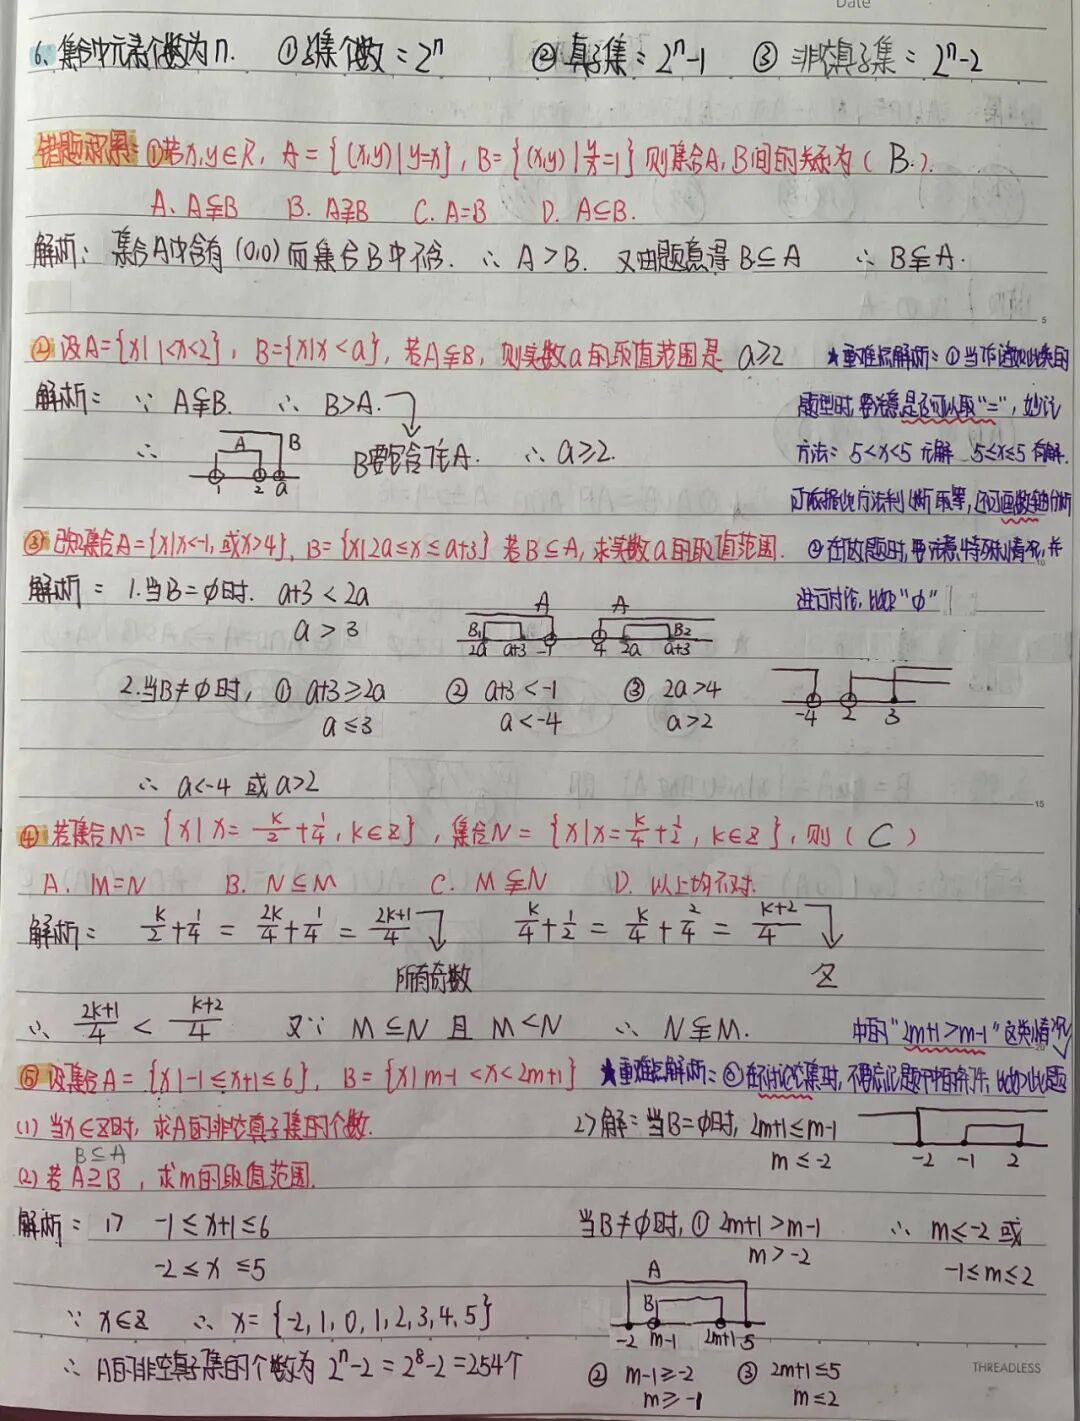 Date
6、集合中元素个数为n. ①子集个数=2ⁿ ②真子集=2ⁿ-1 ③非空真子集=2ⁿ-2
错题积累: ①若x,y∈R, A={(x,y)|y=x}, B={(x,y)|y/x=1}则集合A,B间的关系为( B. ).
A、A⫋B B. A⫌B C. A=B D. A⊆B.
解析: 集合A中含有(0,0)而集合B中不含. ∴ A>B. 又由题意得B⊆A ∴ B⫋A.
②设A={x|1<x<2}, B={x|x<a}, 若A⫋B, 则实数a的取值范围是 a≥2
解析: ∵ A⫋B. ∴ B>A.
B要包含住A. ∴ a≥2.
A B
1 2 a
★重难点解析: ①当作诸如此类的
题型时,要注意是否可以取"=", 妙记
方法: 5<x<5 无解 5≤x≤5 有解.
可依据此方法判断取等,还可画数轴分析
③已知集合A={x|x<-1,或x>4}, B={x|2a≤x≤a+3}若B⊆A,求实数a的取值范围.
②在做题时,要注意特殊情况,并
进行讨论,比如"∅"
解析: 1.当B=∅时. a+3<2a
a>3
A A
B₁ B₂
2a a+3 -1 4 2a a+3
2.当B≠∅时, ① a+3≥2a ② a+3<-1 ③ 2a>4
a≤3 a<-4 a>2
-4 2 3
∴ a<-4 或 a>2
④若集合M={x|x=k/2+1/4, k∈Z}, 集合N={x|x=k/4+1/2, k∈Z}, 则( C )
A. M=N B. N⊆M C. M⫋N D. 以上均不对.
解析: k/2+1/4=2k/4+1/4=(2k+1)/4 k/4+1/2=k/4+2/4=(k+2)/4
所有奇数 Z
∴ (2k+1)/4<(k+2)/4 又∵ M⊆N 且 M<N ∴ N⫋M.
⑤设集合A={x|-1≤x+1≤6}, B={x|m-1<x<2m+1}
★重难点解析: ③在讨论空集时,不要忘记题干中的条件,比如此题
中的"2m+1>m-1"这类情况
(1)当x∈Z时,求A的非空真子集的个数.
B⊆A
(2)若A⊇B, 求m的取值范围.
解析: 1) -1≤x+1≤6
-2≤x≤5
∵ x∈Z ∴ x={-2,1,0,1,2,3,4,5}
∴ A的非空真子集的个数为2ⁿ-2=2⁸-2=254个
2)解:当B=∅时, 2m+1≤m-1
m≤-2
-2 -1 2
当B≠∅时,① 2m+1>m-1
m>-2
A
B
-2 m-1 2m+1 5
② m-1≥-2 ③ 2m+1≤5
m≥-1 m≤2
∴ m≤-2 或
-1≤m≤2
THREADLESS